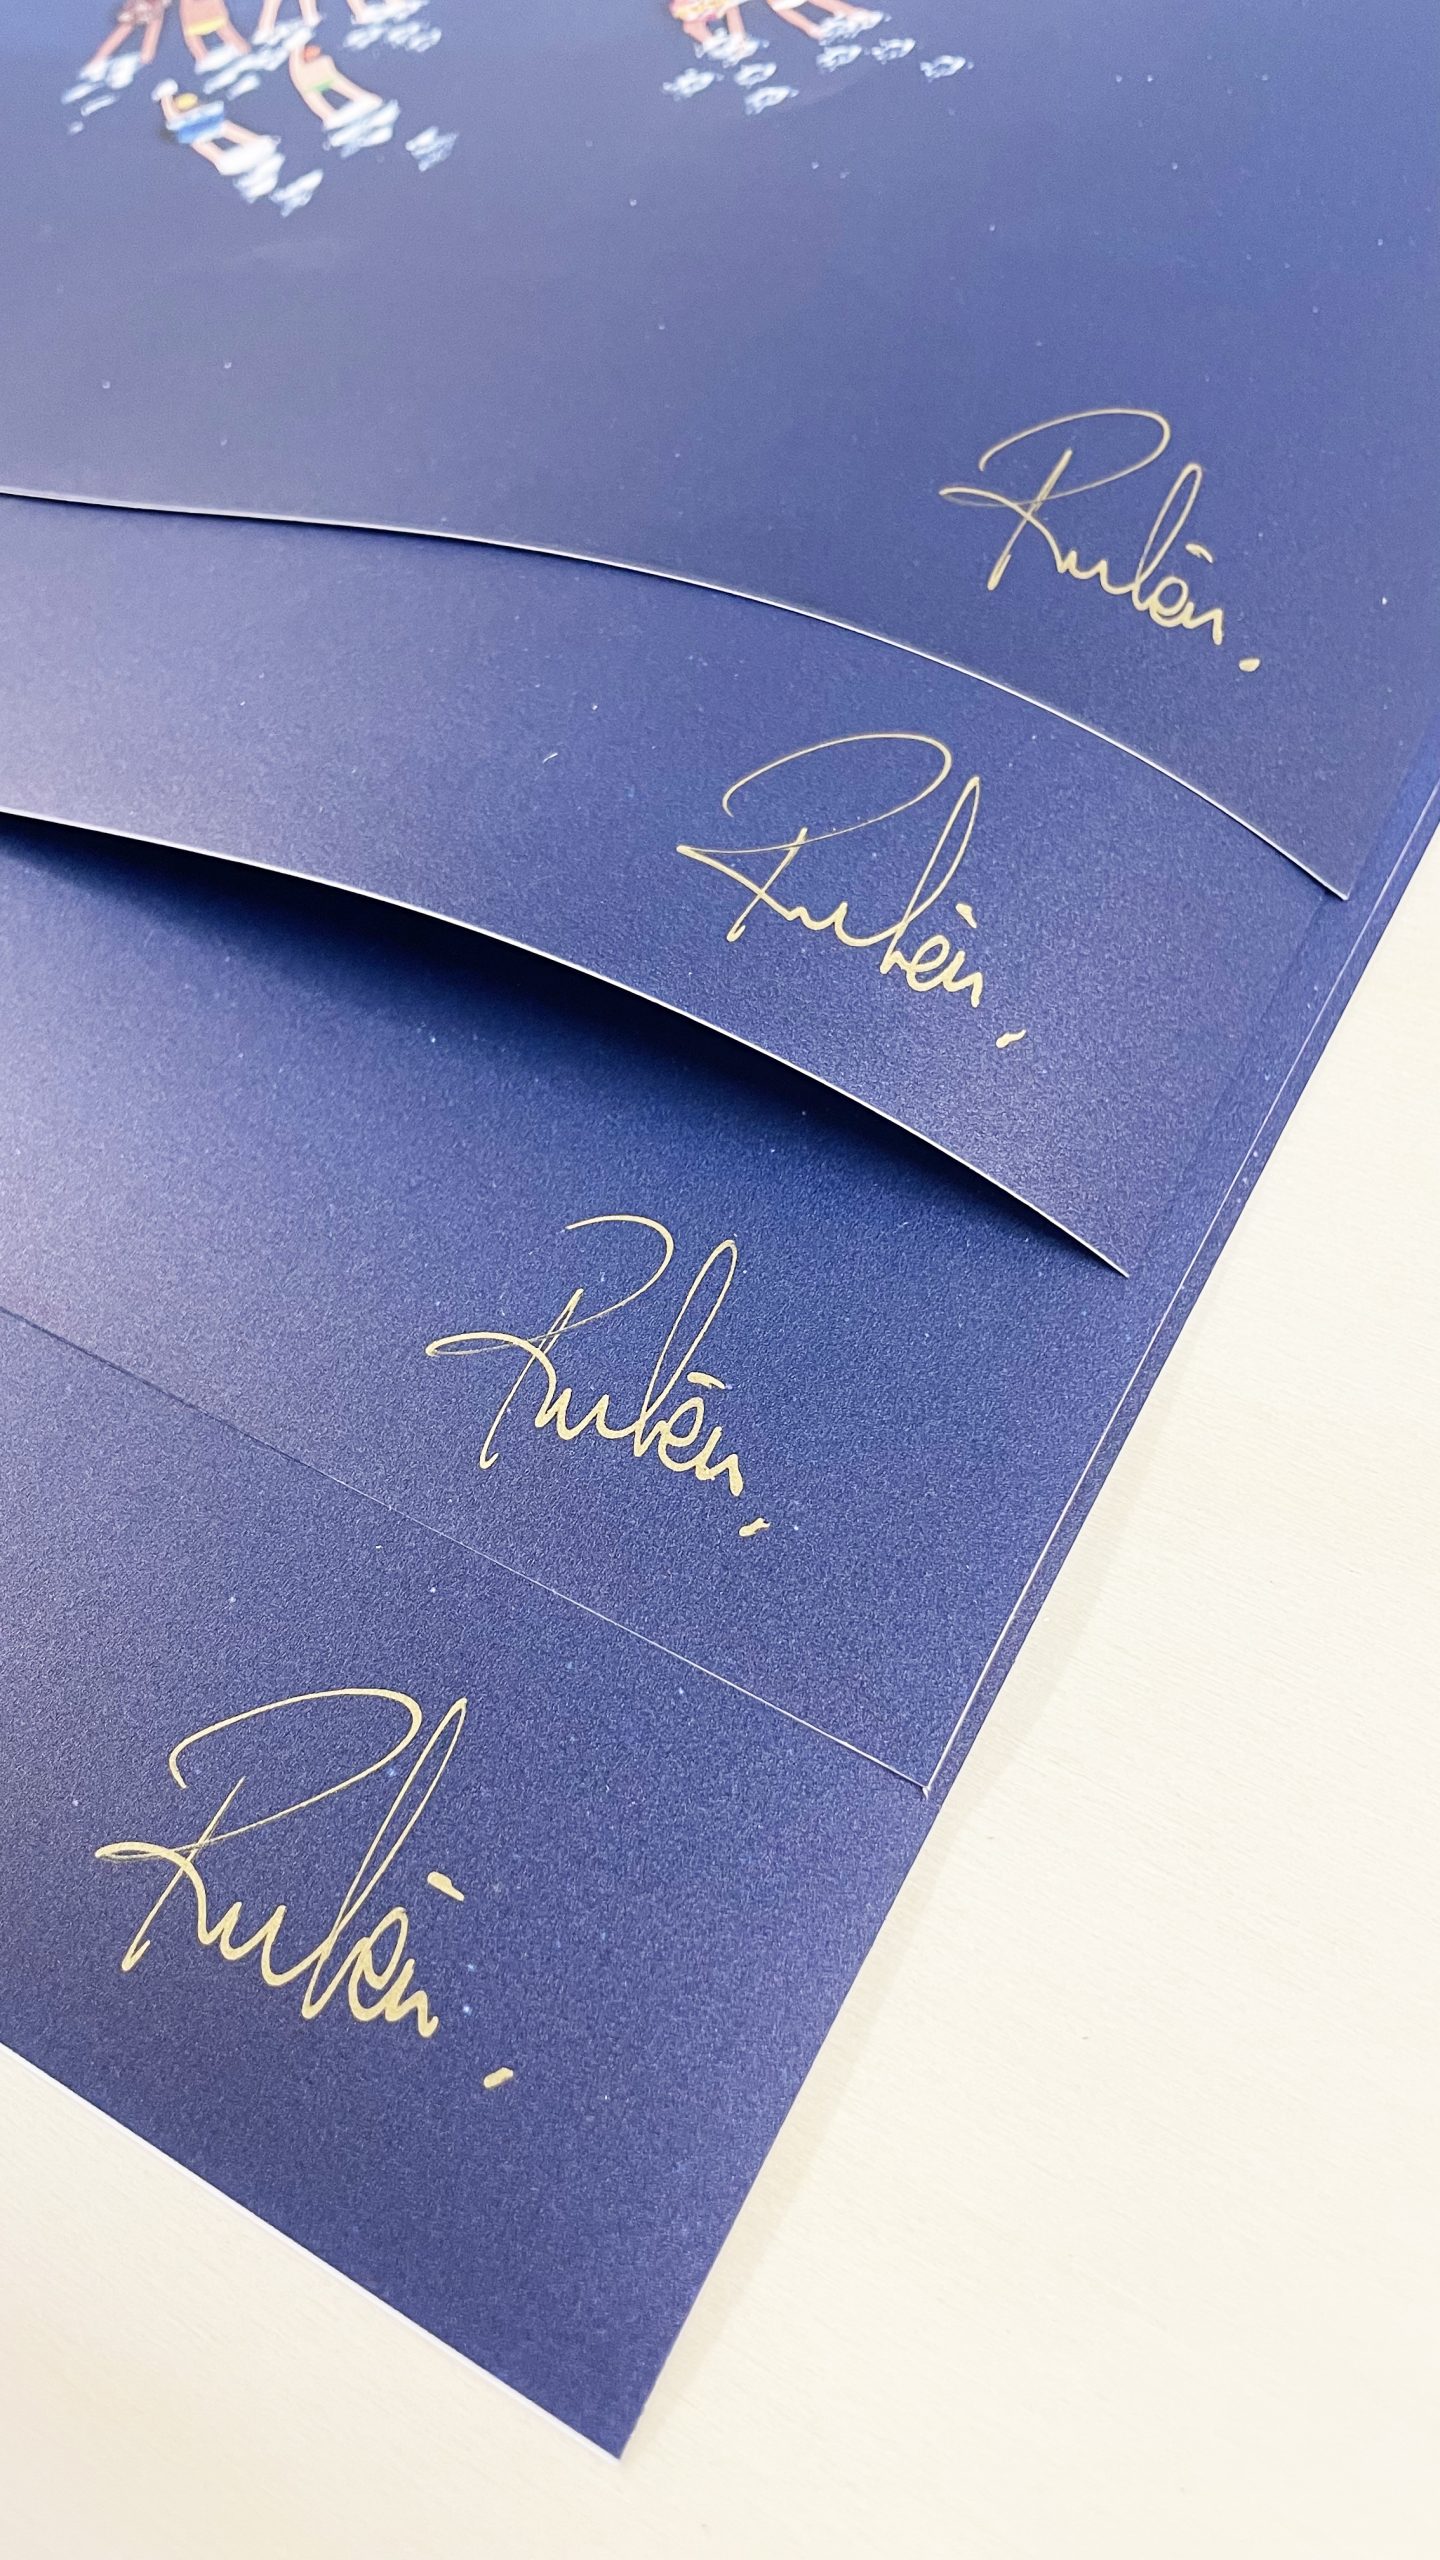 Rubén.
Rubén.
Rubén.
Rubén.